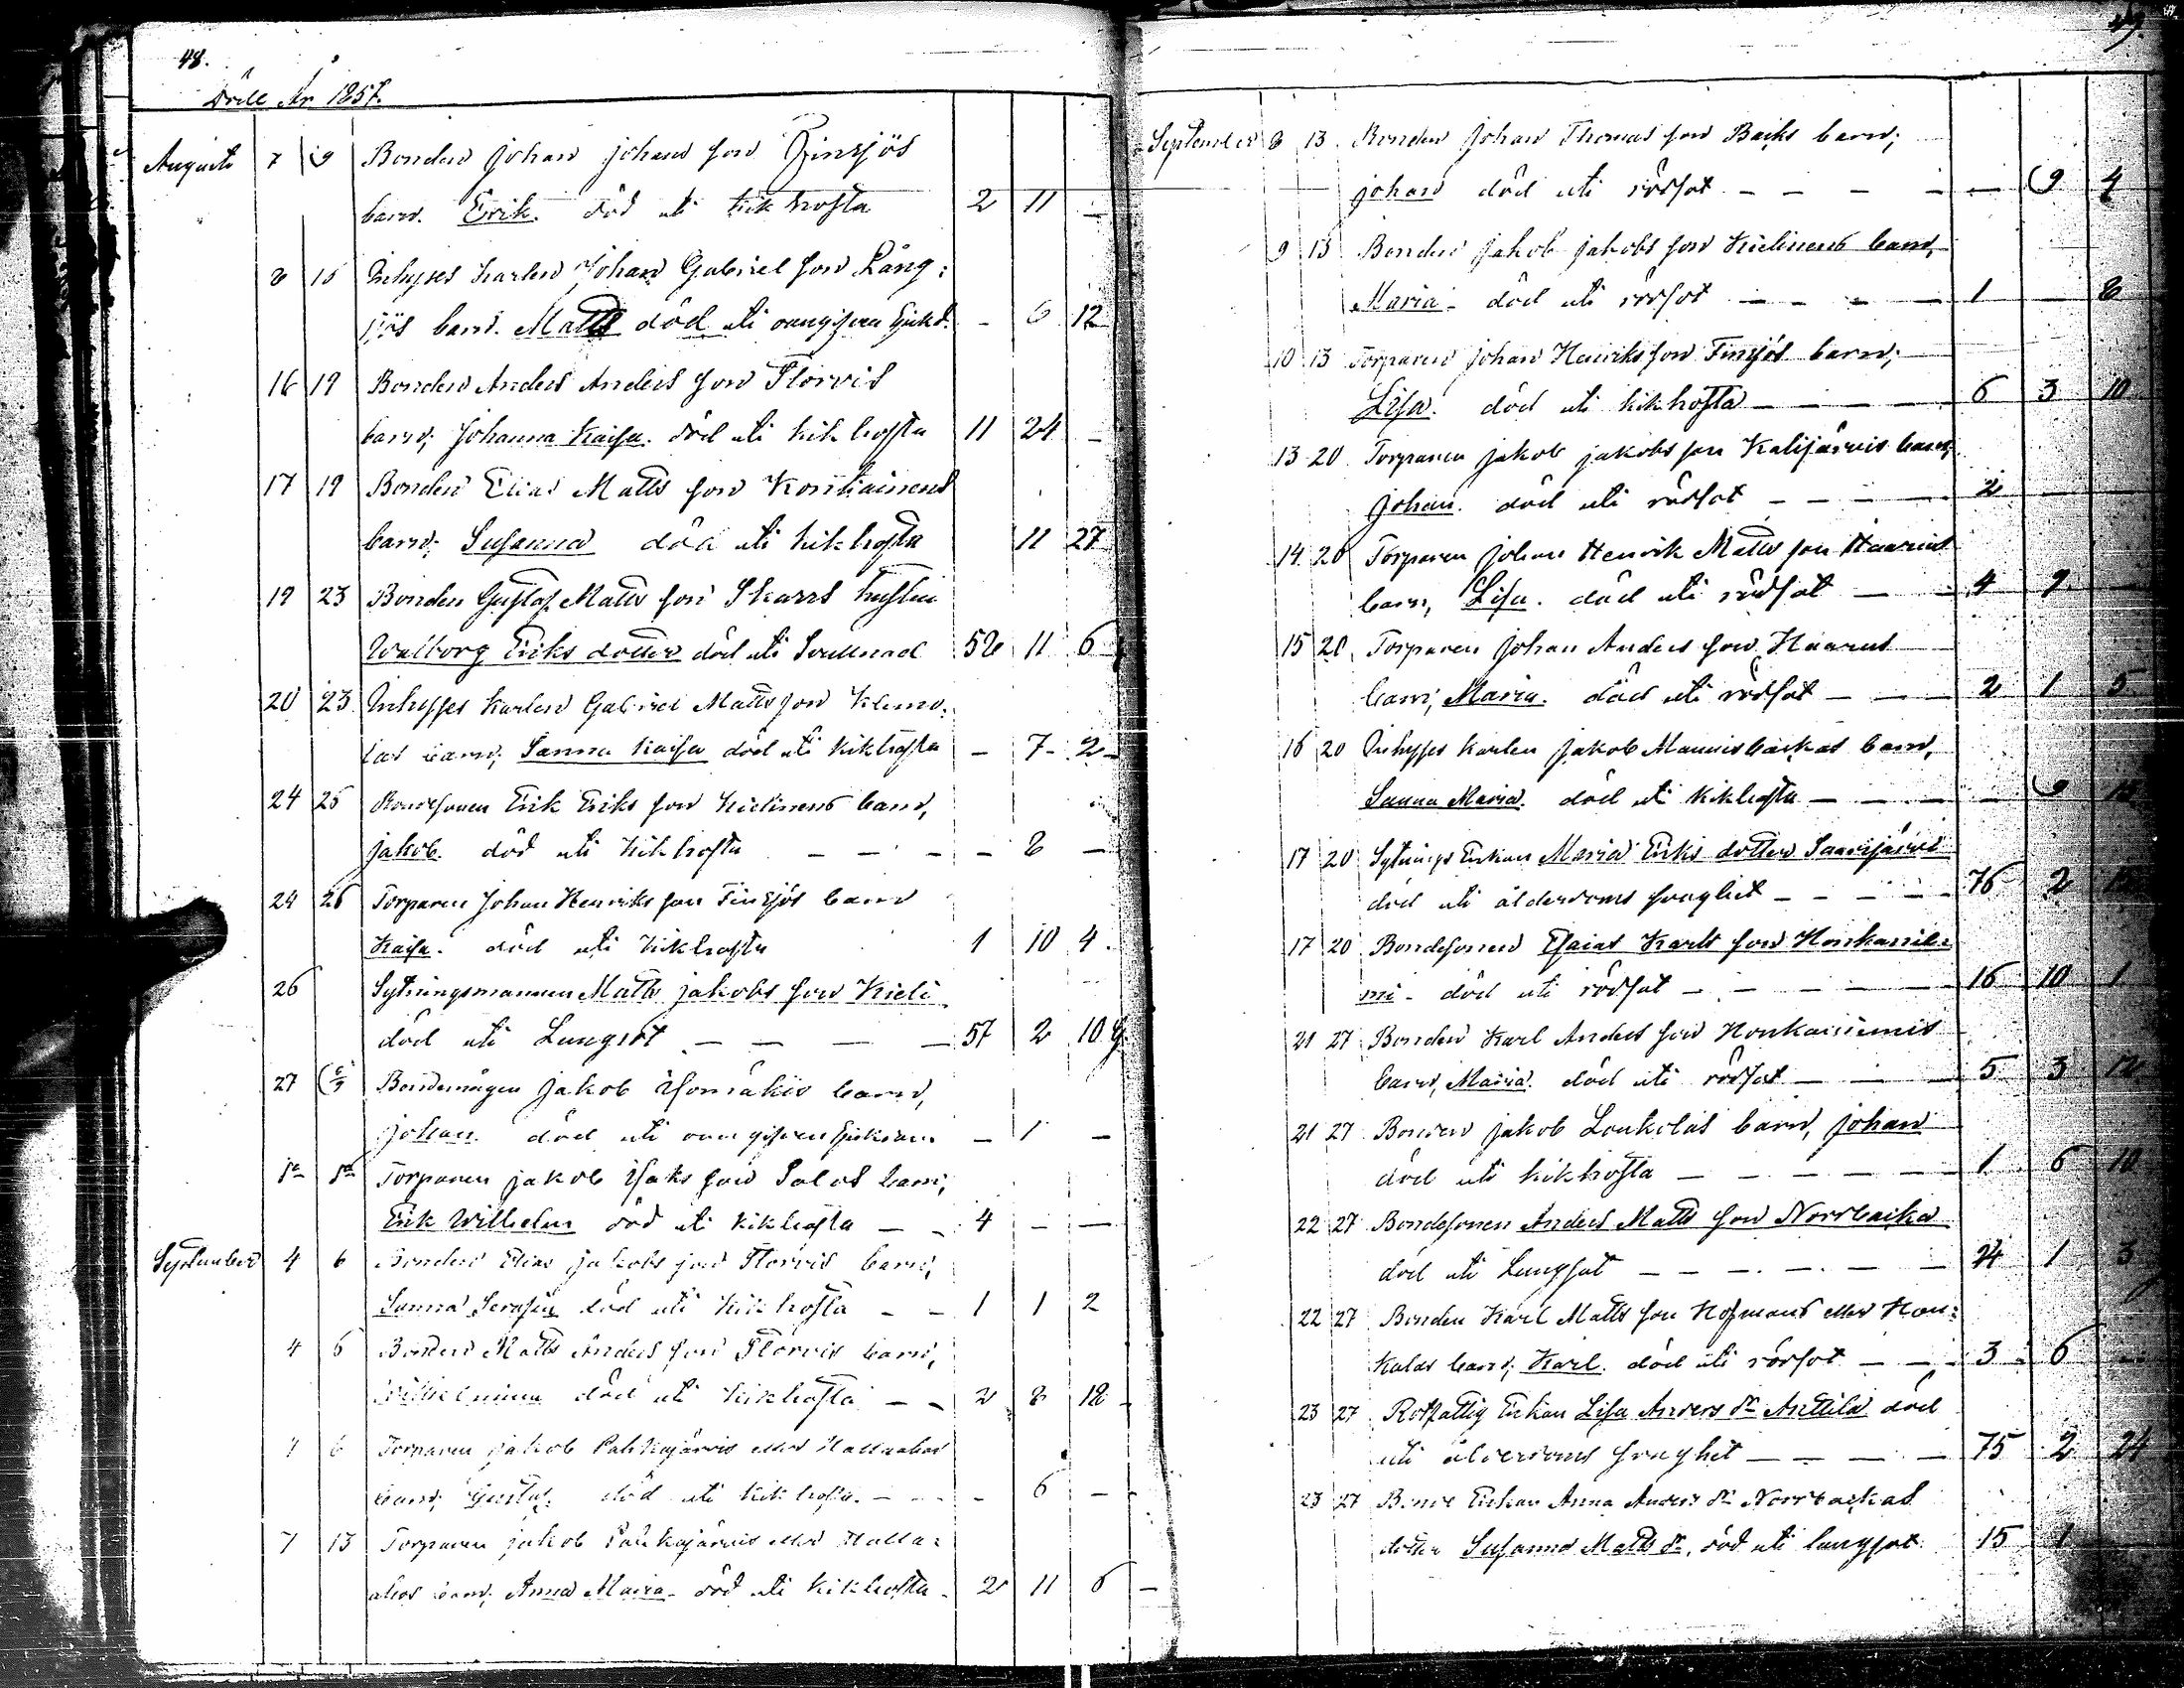 48.
Döde År 1857.
Augusti 7 9 Bonden Johan Johans son Finsjös
barn. Erik. död uti kikhosta 2 11 -
8 16 Inhyses karlen Johan Gabriel son Lång:
sjös barn. Matts död uti oangifven sjukd. - 6 12
16 19 Bonden Anders Anders son Storvis
barn; Johanna Kaisa. död uti kikhosta 11 24 -
17 19 Bonden Elias Matts son Kontiainens
barn; Susanna död uti kikhosta 11 27
19 23 Bonden Gustaf Matts son Skarrs hustru
Walborg Eriks dotter död uti Svullnad 52 11 6
20 23 Inhyses karlen Gabriel Matts son
barn; Sanna Kaisa död uti kikhosta - 7 - 2 -
24 26 Bondesonen Erik Eriks son Kielinens barn,
Jakob. död uti kikhosta - - - - 8 -
24 26 Torparen Johan Henriks son Finsjös barn
Kaisa. död uti kikhosta 1 10 4.
26 Sytningsmannen Matts Jakobs son Kieli
död uti Lungsot - - - - 57 2 10
27 Bondemågen Jakob Isomäkis barn,
Johan. död uti oangifven sjukdom - 1 -
Torparen Jakob Isaks son Salos barn,
Erik Wilhelm död uti kikhosta - - 4 - -
September 4 6 Bonden Elias Jakobs son Storvis barn,
Sanna Serafia död uti kikhosta - - 1 1 2
4 6 Bonden Matts Anders son Storvis barn,
Wilhelmina död uti kikhosta - - 2 8 12 -
4 6 Torparen Jakob Pahkajärvis eller Hallaahos
barn; Gustaf. död uti kikhosta. - - - - 6 - -
7 13 Torparen Jakob Pahkajärvis eller Halla:
ahos barn; Anna Maria. död uti kikhosta - 2 11 6 -
49.
September 8 13 Bonden Johan Thomas son Backs barn;
Johan död uti rödsot - - - - - 9 4
9 13 Bonden Jakob Jakobs son Kielinens barn,
Maria - död uti rödsot - - - - 1 - 8
10 13 Torparen Johan Henriks son Finsjös barn;
Lisa. död uti kikhosta - - - - 6 3 10
13 20 Torparen Jakob Jakobs son Kalijärvis barn,
Johan. död uti rödsot - - - - 2 - -
14 20 Torparen Johan Henrik Matts son Haarus
barn, Lisa. död uti rödsot - - 4 9 -
15 20 Torparen Johan Anders son Haarus
barn, Maria. död uti rödsot - - - 2 1 5
16 20 Inhyses karlen Jakob Mannisbackas barn,
Sanna Maria. död uti kikhosta - - - - 9 15
17 20 Sytnings Enkan Maria Eriks dotter Saarijärvi
död uti ålderdoms svaghet - - - - 76 2
17 20 Bondesonen Esaias Karls son Honkanie:
mi - död uti rödsot - - - - - 16 10 1
21 27 Bonden Karl Anders son Honkaniemis
barn, Maria. död uti rödsot - - - 5 3 12
21 27 Bonden Jakob Loukolas barn, Johan
död uti kikhosta - - - - - - 1 6 10
22 27 Bondesonen Anders Matts son Norrbacka
död uti Lungsot - - - - - - 24 1 3
22 27 Bonden Karl Matts son Hofmans eller Hon:
kalas barn, Karl. död uti rödsot - - - 3 6 -
23 27 Rotfattig Enkan Lisa Anders dr Anttila död
uti ålderdoms svaghet - - - - 75 2 24
23 27 Bonde Enkan Anna Anders dr Norrbackas
dotter Susanna Matts dr, död uti lungsot. 15 1